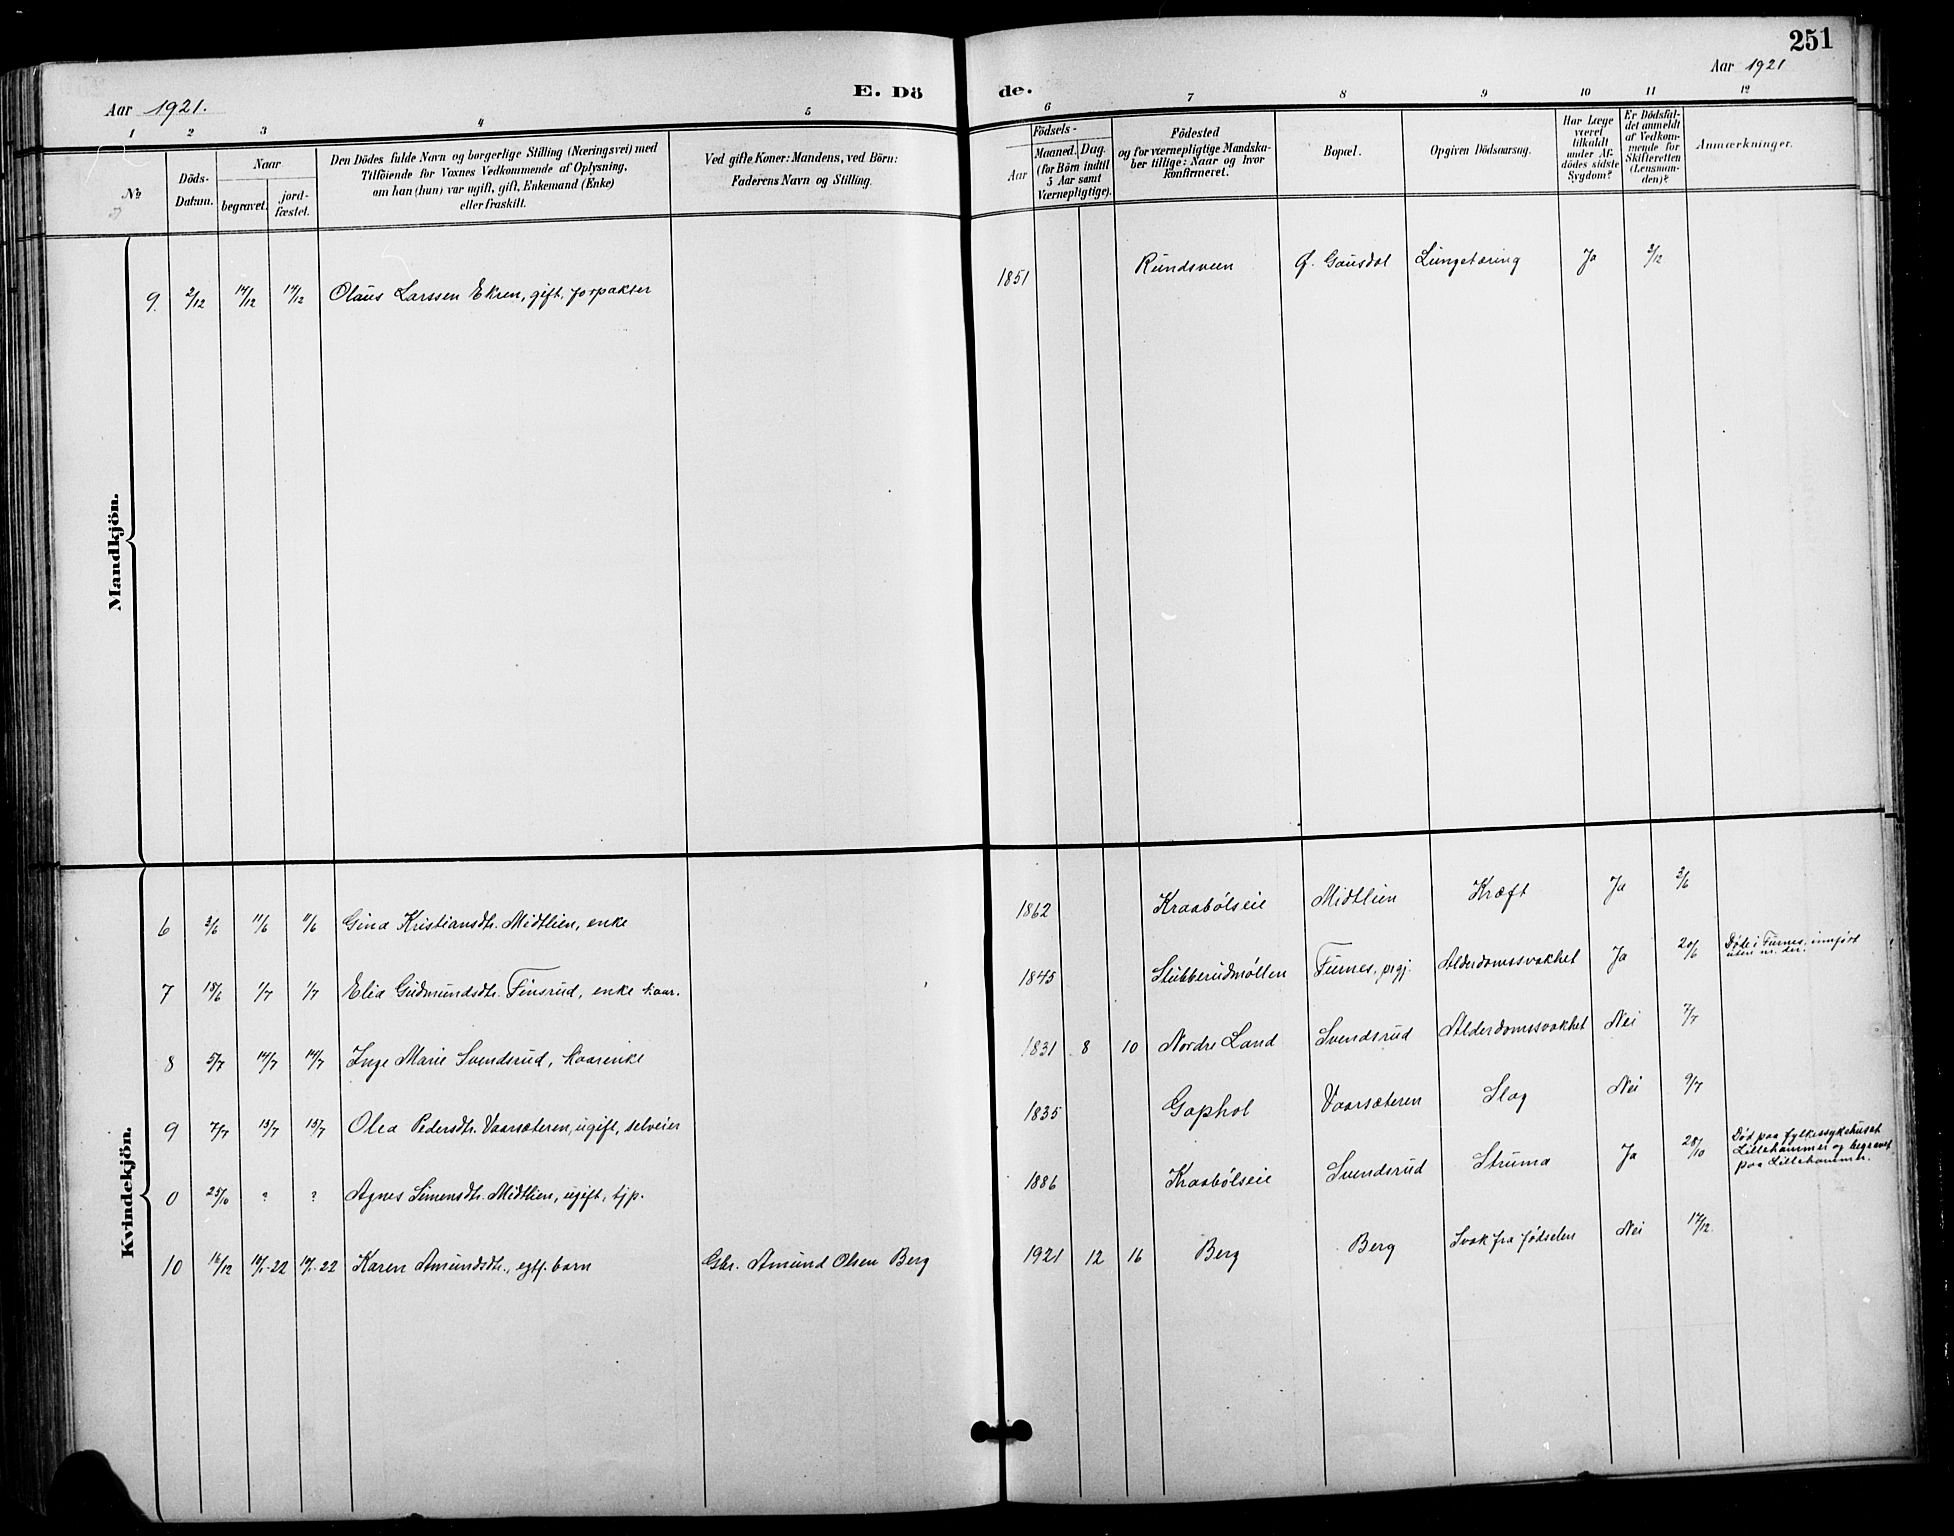 251
Aar 1921.
E. Dö de.
Aar 1921
1 2 3 4 5 6 7 8 9 10 11 12
No
Döds-Datum.
Naar
begravet.
jord-fæstet.
Den Dödes fulde Navn og borgerlige Stilling (Næringsvei) med
Tilföiende for Voxnes Vedkommende af Oplysning,
om han (hun) var ugift, gift, Enkemand (Enke)
eller fraskilt.
Ved gifte Koner: Mandens, ved Börn:
Faderens Navn og Stilling.
Födsels-
Aar
Maaned. Dag.
(for Börn indtil
5 Aar samt
Værnepligtige).
Födested
og for værnepligtige Mandska-
ber tillige: Naar og hvor
konfirmeret.
Bopæl.
Opgiven Dödsaarsag.
Har Læge
været
tilkaldt
under Af-
dödes sidste
Sygdom?
Er Dödsfal-
det anmeldt
af Vedkom-
mende for
Skifteretten
(Lensman-
den)?
Anmærkninger.
Mandkjön.
9. 2/12 14/12 14/12 Olaus Larssen Ekren, gift, forpakter 1851 Rundsveen Ø. Gausdal Lungetæring Ja 2/12
Kvindekjön.
6 3/6 11/6 11/6 Gina Kristiansdtr. Midtlien, enke 1862 Kraabølseie Midtlien Kræft Ja 3/6
7 18/6 1/7 1/7 Elia Gudmundsdtr. Finsrud, enke kaar. 1845 Stubberudmøllen Furnes, prgj. Alderdomssvakhet Ja 20/6 Døde i Furnes, innført
8 5/7 14/7 14/7 Inge Marie Svendsrud, kaarenke 1831 8 10 Nordre Land Svendsrud Alderdomssvakhet Nei 7/7
9 7/7 15/7 15/7 Olea Pedersdtr. Vaarsæteren, ugift, selveier 1835 Gaphol Vaarsæteren Slag Nei 9/7
0 25/10 ? ? Agnes Simensdtr. Midtlien, ugift, tjp. 1886 Kraabølseie Svendsrud Struma Ja 28/10 Død paa fylkessykehuset
Lillehammer og begravet
paa Lillehammer.
10 16/12 14/1-22 14/1-22 Karen Amundsdtr., egtf. barn Gbr. Amund Olsen Berg 1921 12 16 Berg Berg Svak fra fødselen Nei 17/12.